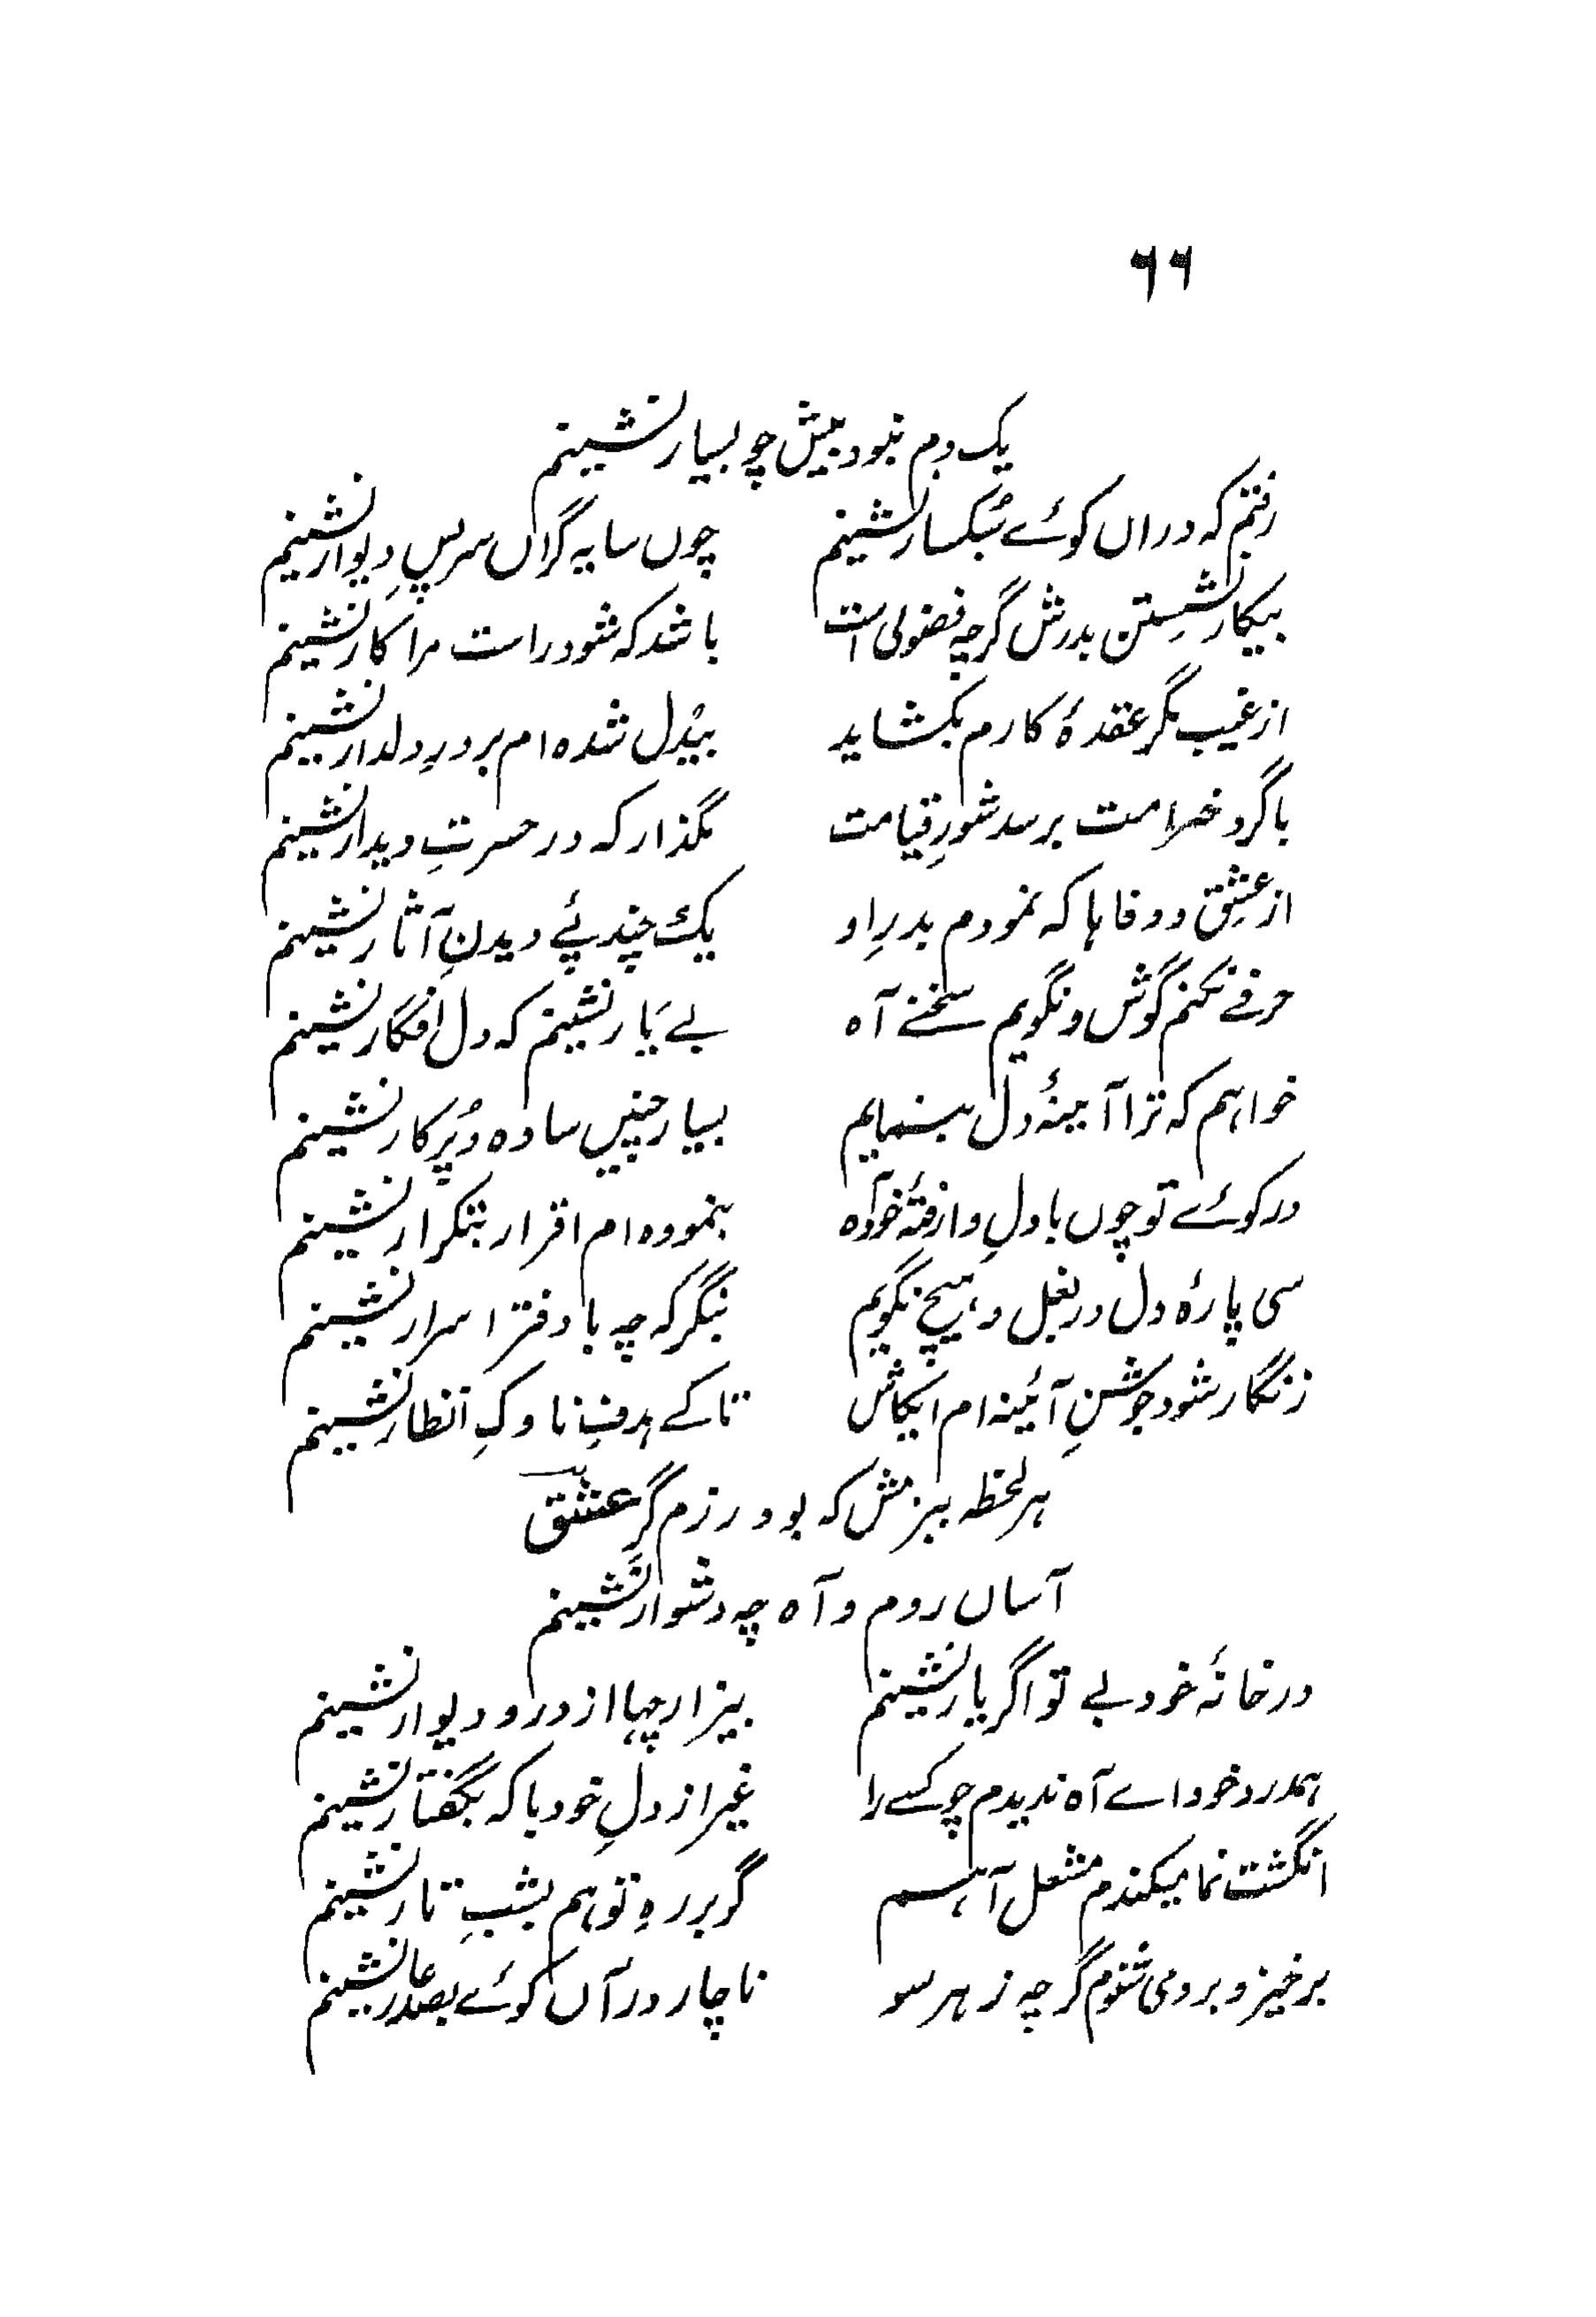 ۶۶
یک دم نبود بیش چو بسیار نشینم
رفتم که دراں کوئے سُبکسار نشینم چوں سایہ گراں سر پسِ دیوار نشینم
بیکار نشِستن بدرش گرچہ فضولی است باشد که شود راست مرا کار نشینم
از غیب مگر عقدۂ کارم بکشاید بیدل شده ام بر درِ دلدار نشینم
باگرد خرامت برسد شورِ قیامت بگذار که در حسرتِ دیدار نشینم
از عشق و وفاہا که نمودم بدرِ او یک چند پئے دیدنِ آثار نشینم
حرفے نکنم گوش و نگویم سخنے آه بے یار نشینم که دل افگار نشینم
خواہم که ترا آئینۂ دل بنمایم بسیار چنیں ساده و پُرکار نشینم
در کوئے تو چوں با دلِ وارفتۂ خود آه بنموده ام اقرار بتکرار نشینم
سی پارۂ دل در بغل و ہیچ نگویم بنگر که چہ با دفتر اسرار نشینم
زنگار شود جوشنِ آئینہ ام ایکاش تا کے ہدفِ ناوکِ انظار نشینم
ہر لحظہ ببزمش که بود رزم گرِ عشق
آساں روم و آه چہ دشوار نشینم
در خانۂ خود بے تو اگر یار نشینم بیزار چہا از در و دیوار نشینم
ہمدرد خود اے آه ندیدم چو کسے را غیر از دلِ خود با که بگفتار نشینم
انگشت نما میکندم مشعل آہم گر بر رهِ تو ہم بشبِ تار نشینم
برخیز و برو می شنوم گرچہ ز ہر سو ناچار در آں کوئے بصد عار نشینم